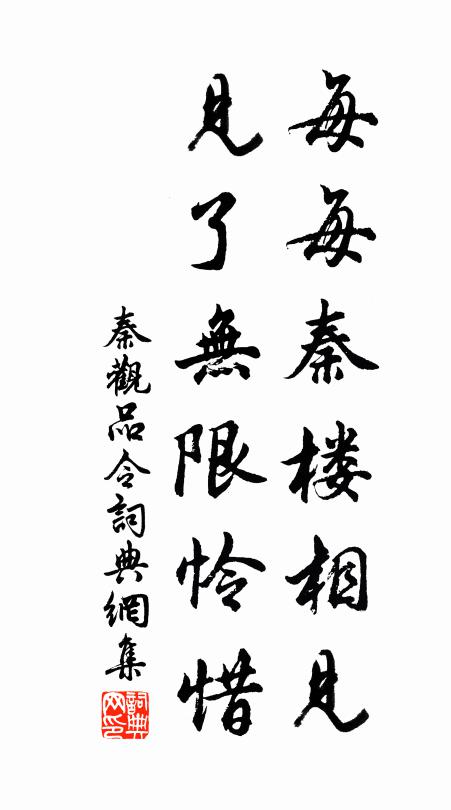 每每秦楼相見
見了無限怜惜
秦觀品令詞典網集
詞典網印